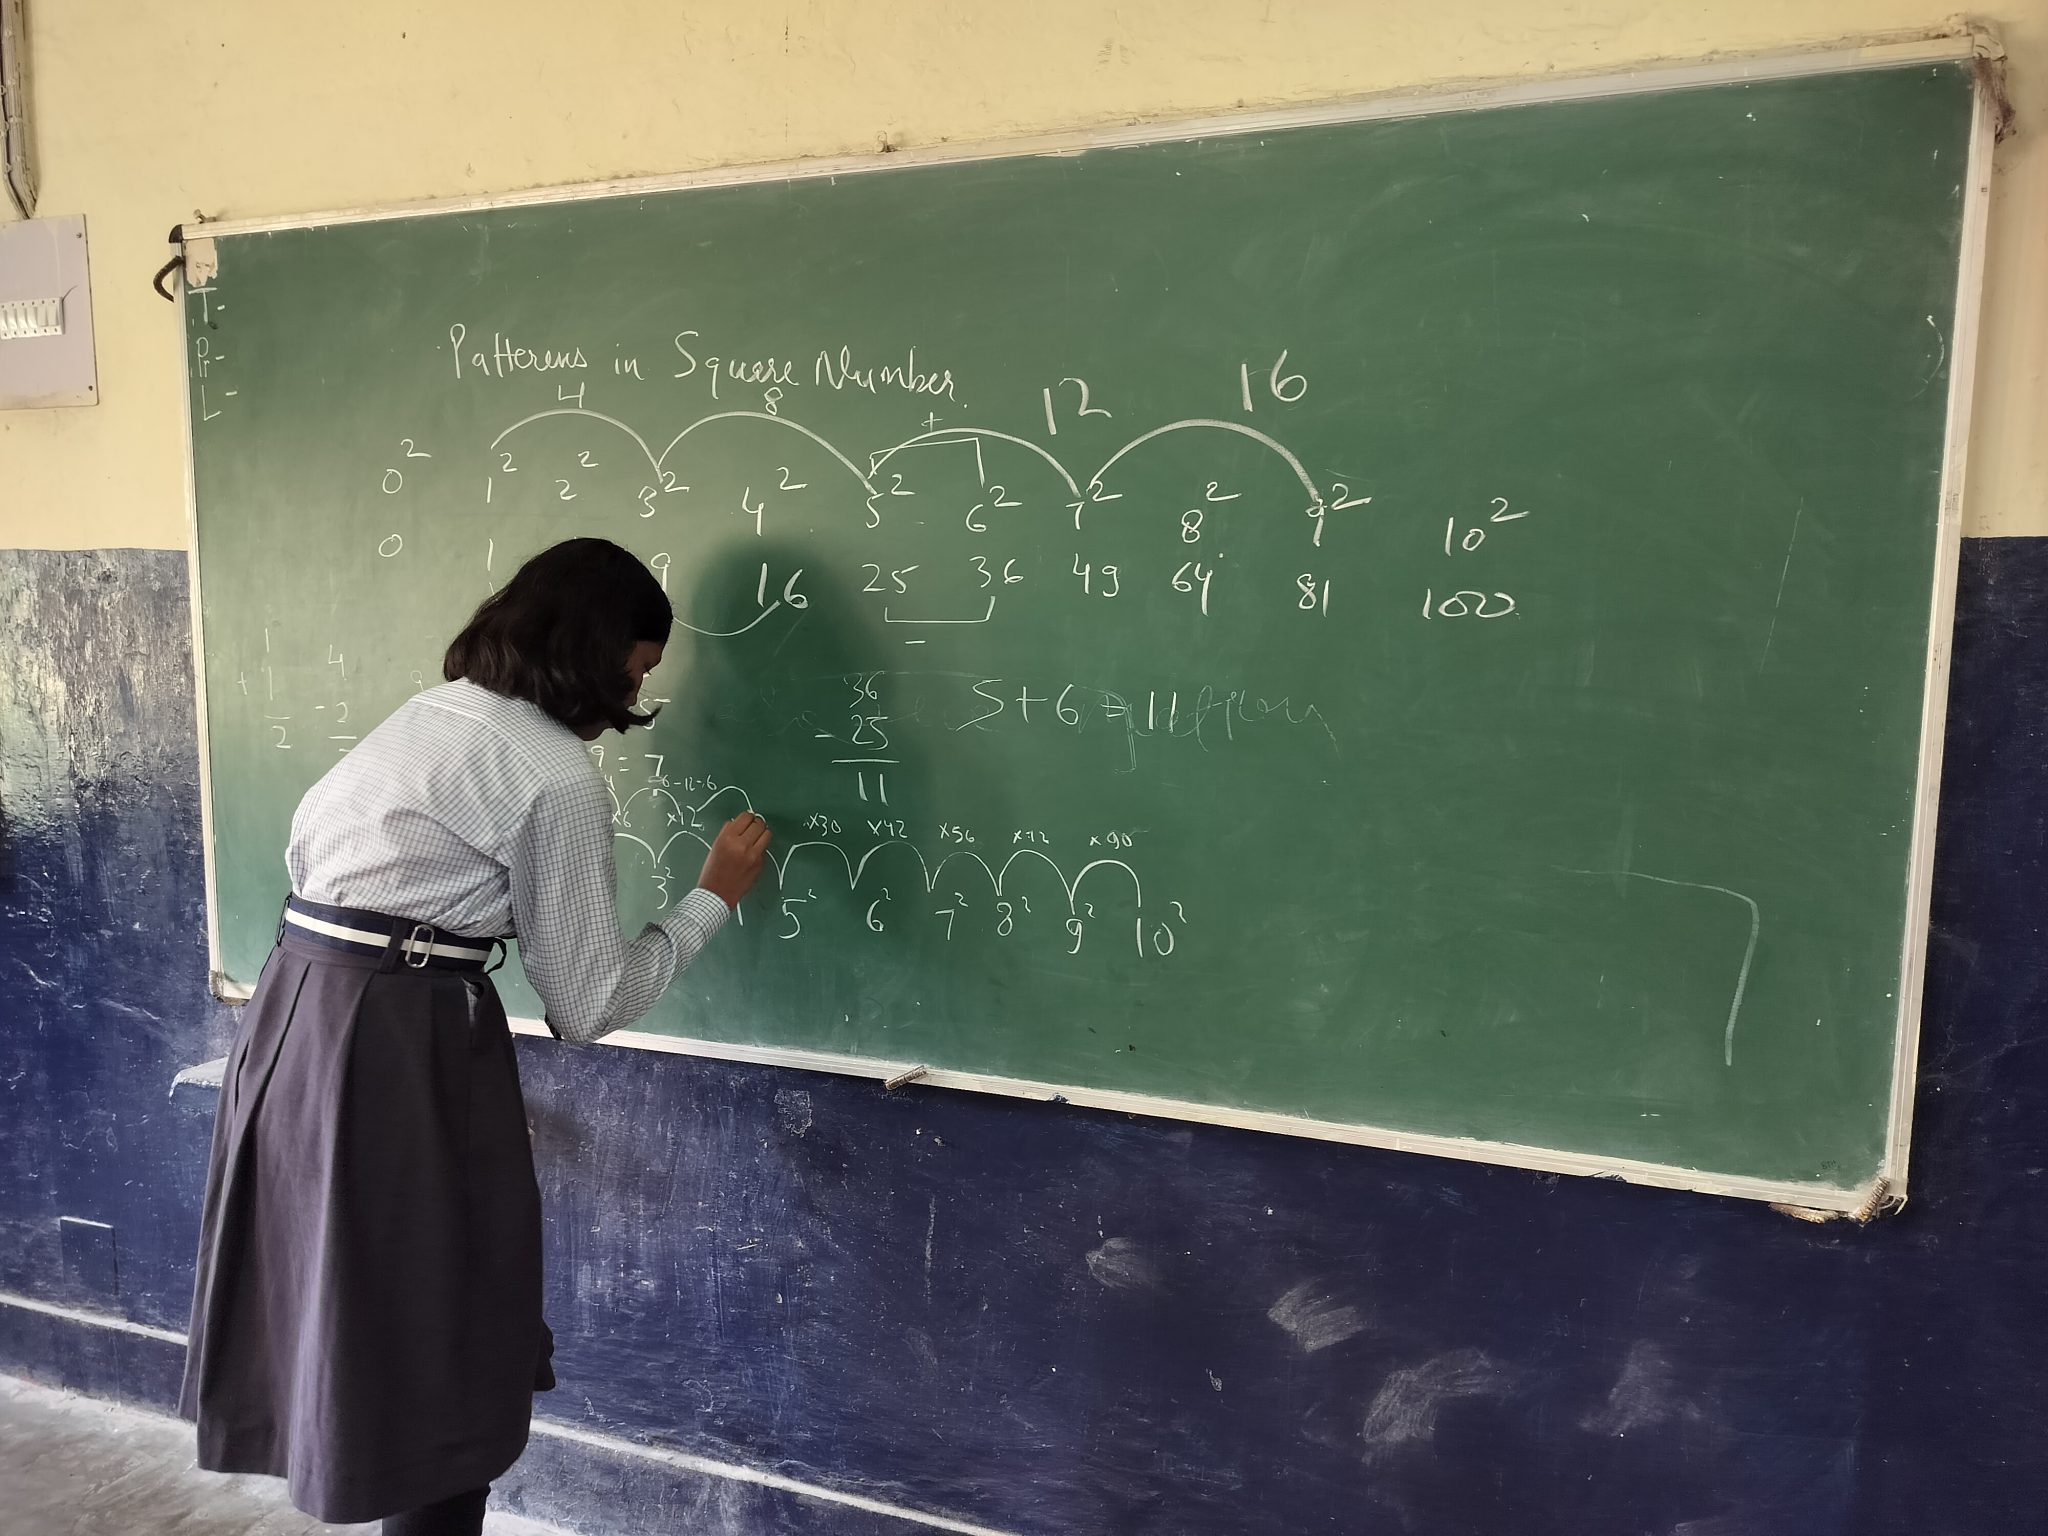 T-
Pr-
L-
Patterens in Square Number.
4 8 12 16
+
0² 1² 2² 3² 4² 5² 6² 7² 8² 9² 10²
0 1 9 16 25 36 49 64 81 100
-
1
+ 1
2
4
- 2
9
5
9 = 7
36
- 25
11
5+6=11
6-12=6
x6 x12 x30 x42 x56 x72 x90
3² 5² 6² 7² 8² 9² 10²